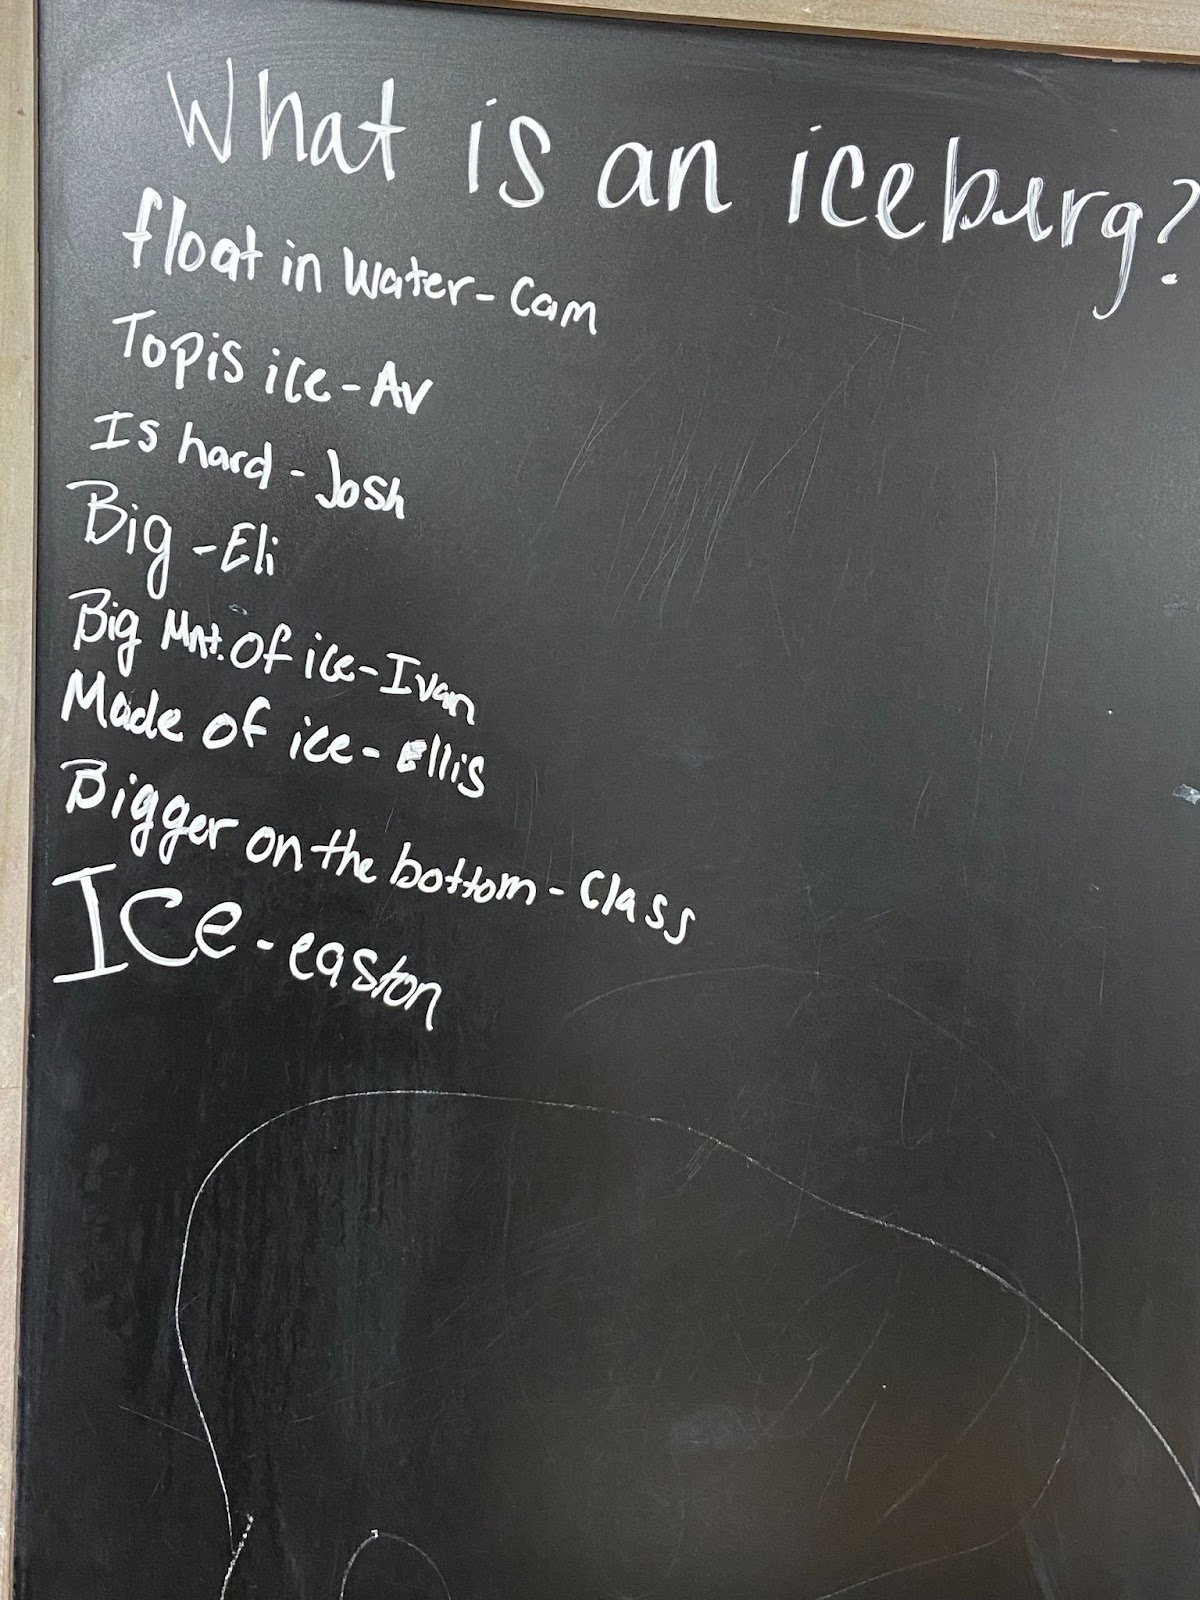 What is an iceberg?
float in water - Cam
Top is ice - Av
Is hard - Josh
Big - Eli
Big Mnt. of ice - Ivan
Made of ice - Ellis
Bigger on the bottom - Class
Ice - easton